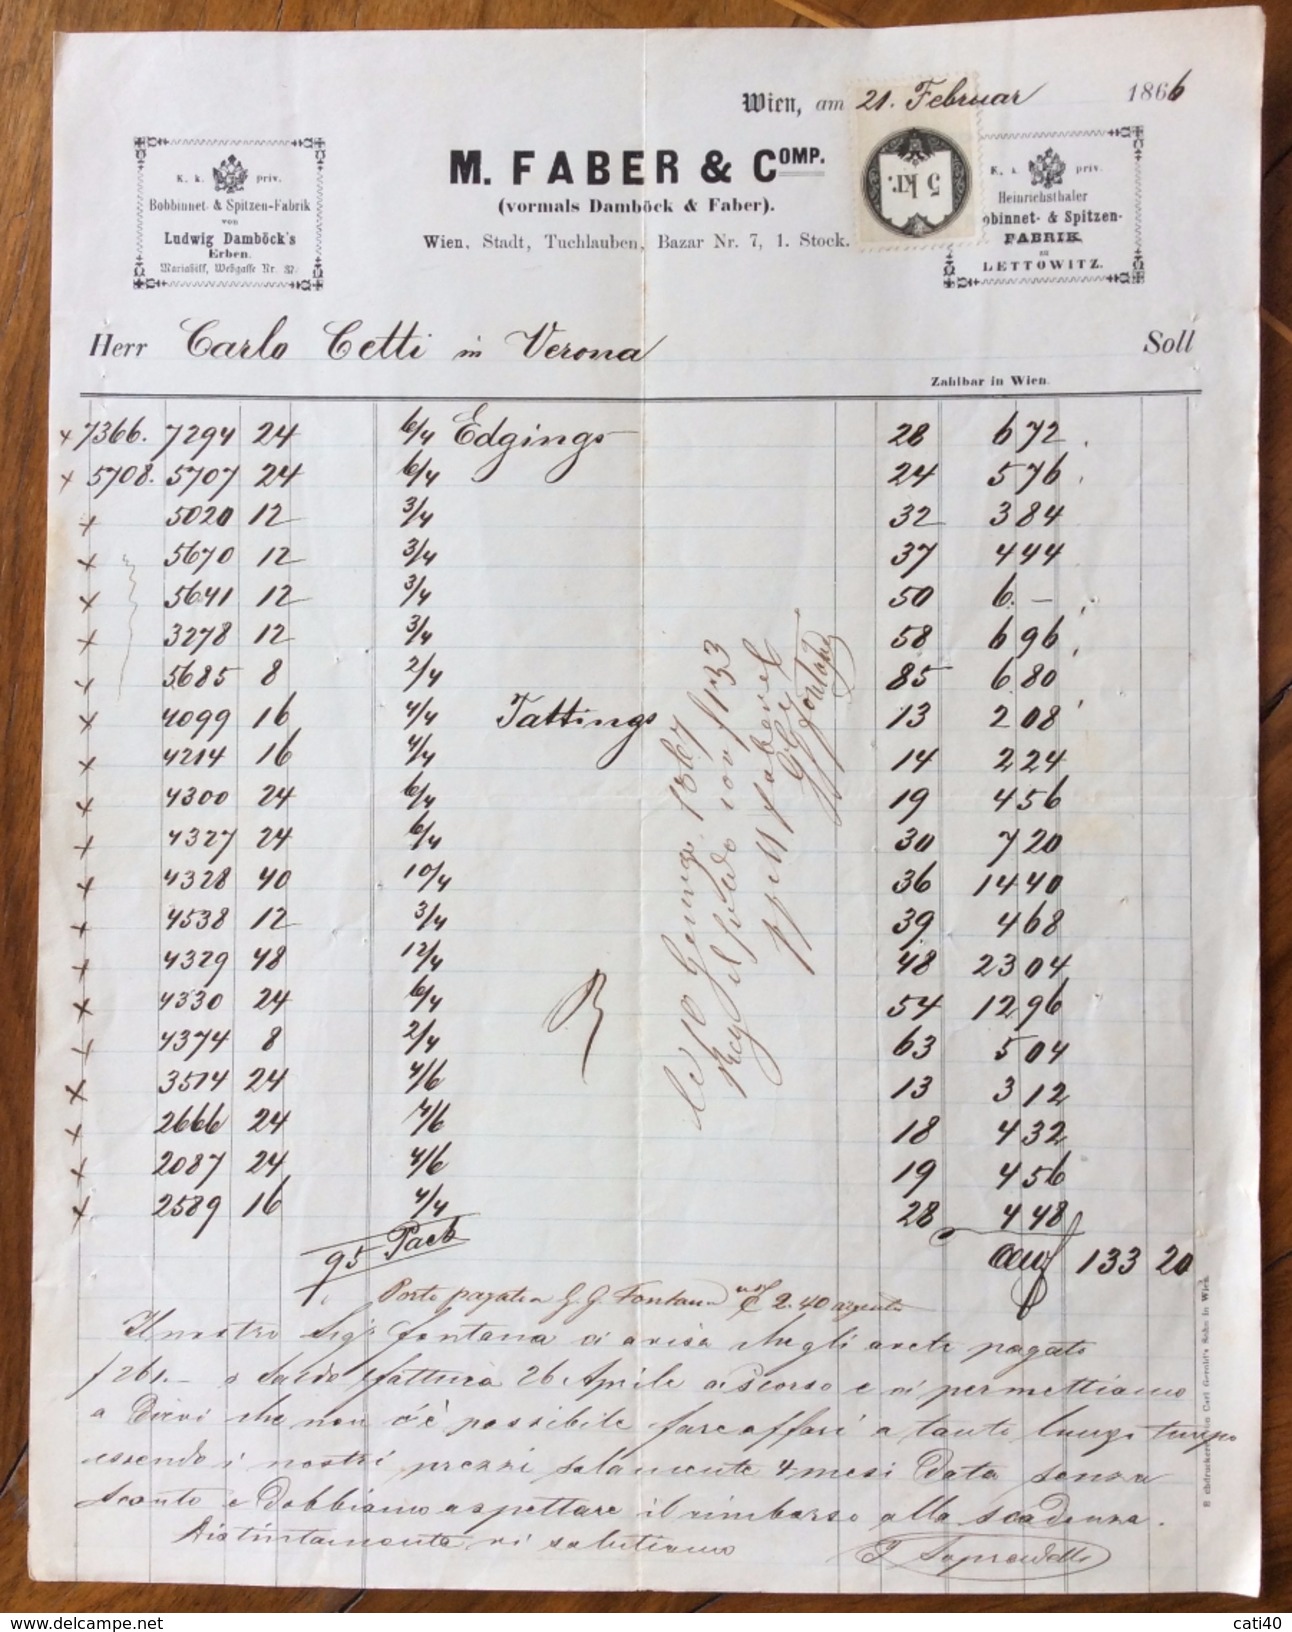 Wien, am 21. Februar 1866
K. k. priv.
Bobbinnet- & Spitzen-Fabrik
von
Ludwig Damböck's
Erben.
Mariahilf, Webgasse Nr. 37.
M. FABER & COMP.
(vormals Damböck & Faber).
Wien, Stadt, Tuchlauben, Bazar Nr. 7, 1. Stock.
5 kr.
K. k. priv.
Heinrichsthaler
obbinnet- & Spitzen-
FABRIK
zu
LETTOWITZ.
Herr Carlo Cetti in Verona Soll
Zahlbar in Wien.
x 7366. 7294 24 6/4 Edgings 28 6 72
x 5708. 5707 24 6/4 24 5 76
x 5020 12 3/4 32 3 84
x 5670 12 3/4 37 4 44
x 5641 12 3/4 50 6. –
x 3278 12 3/4 58 6 96
x 5685 8 2/4 85 6 80
x 4099 16 4/4 Tattings 13 2 08
x 4214 16 4/4 14 2 24
x 4300 24 6/4 19 4 56
x 4327 24 6/4 30 7 20
x 4328 40 10/4 36 14 40
x 4538 12 3/4 39 4 68
x 4329 48 12/4 48 23 04
x 4330 24 6/4 54 12 96
x 4374 8 2/4 63 5 04
x 3514 24 4/6 13 3 12
x 2666 24 4/6 18 4 32
x 2087 24 4/6 19 4 56
x 2589 16 4/4 28 4 48
95 Pack 133 20
Li 10 1867
il saldo f 133
Faber
Fontana
Porto pagato a G. G. Fontana 2.40 argento
Il nostro Sigr Fontana ci avisa che gli avete pagato
f 261.– a Saldo fattura 26 Aprile a scorso e vi permettiamo
a Dirvi che non c'è possibile fare affari a tanto lungo tempo
essendo i nostri prezzi solamente 4 mesi Data senza
Sconto e Dobbiamo aspettare il rimborso alla scadenza.
Distintamente vi salutiamo
Carl Gerold's Sohn in Wien.
cati40